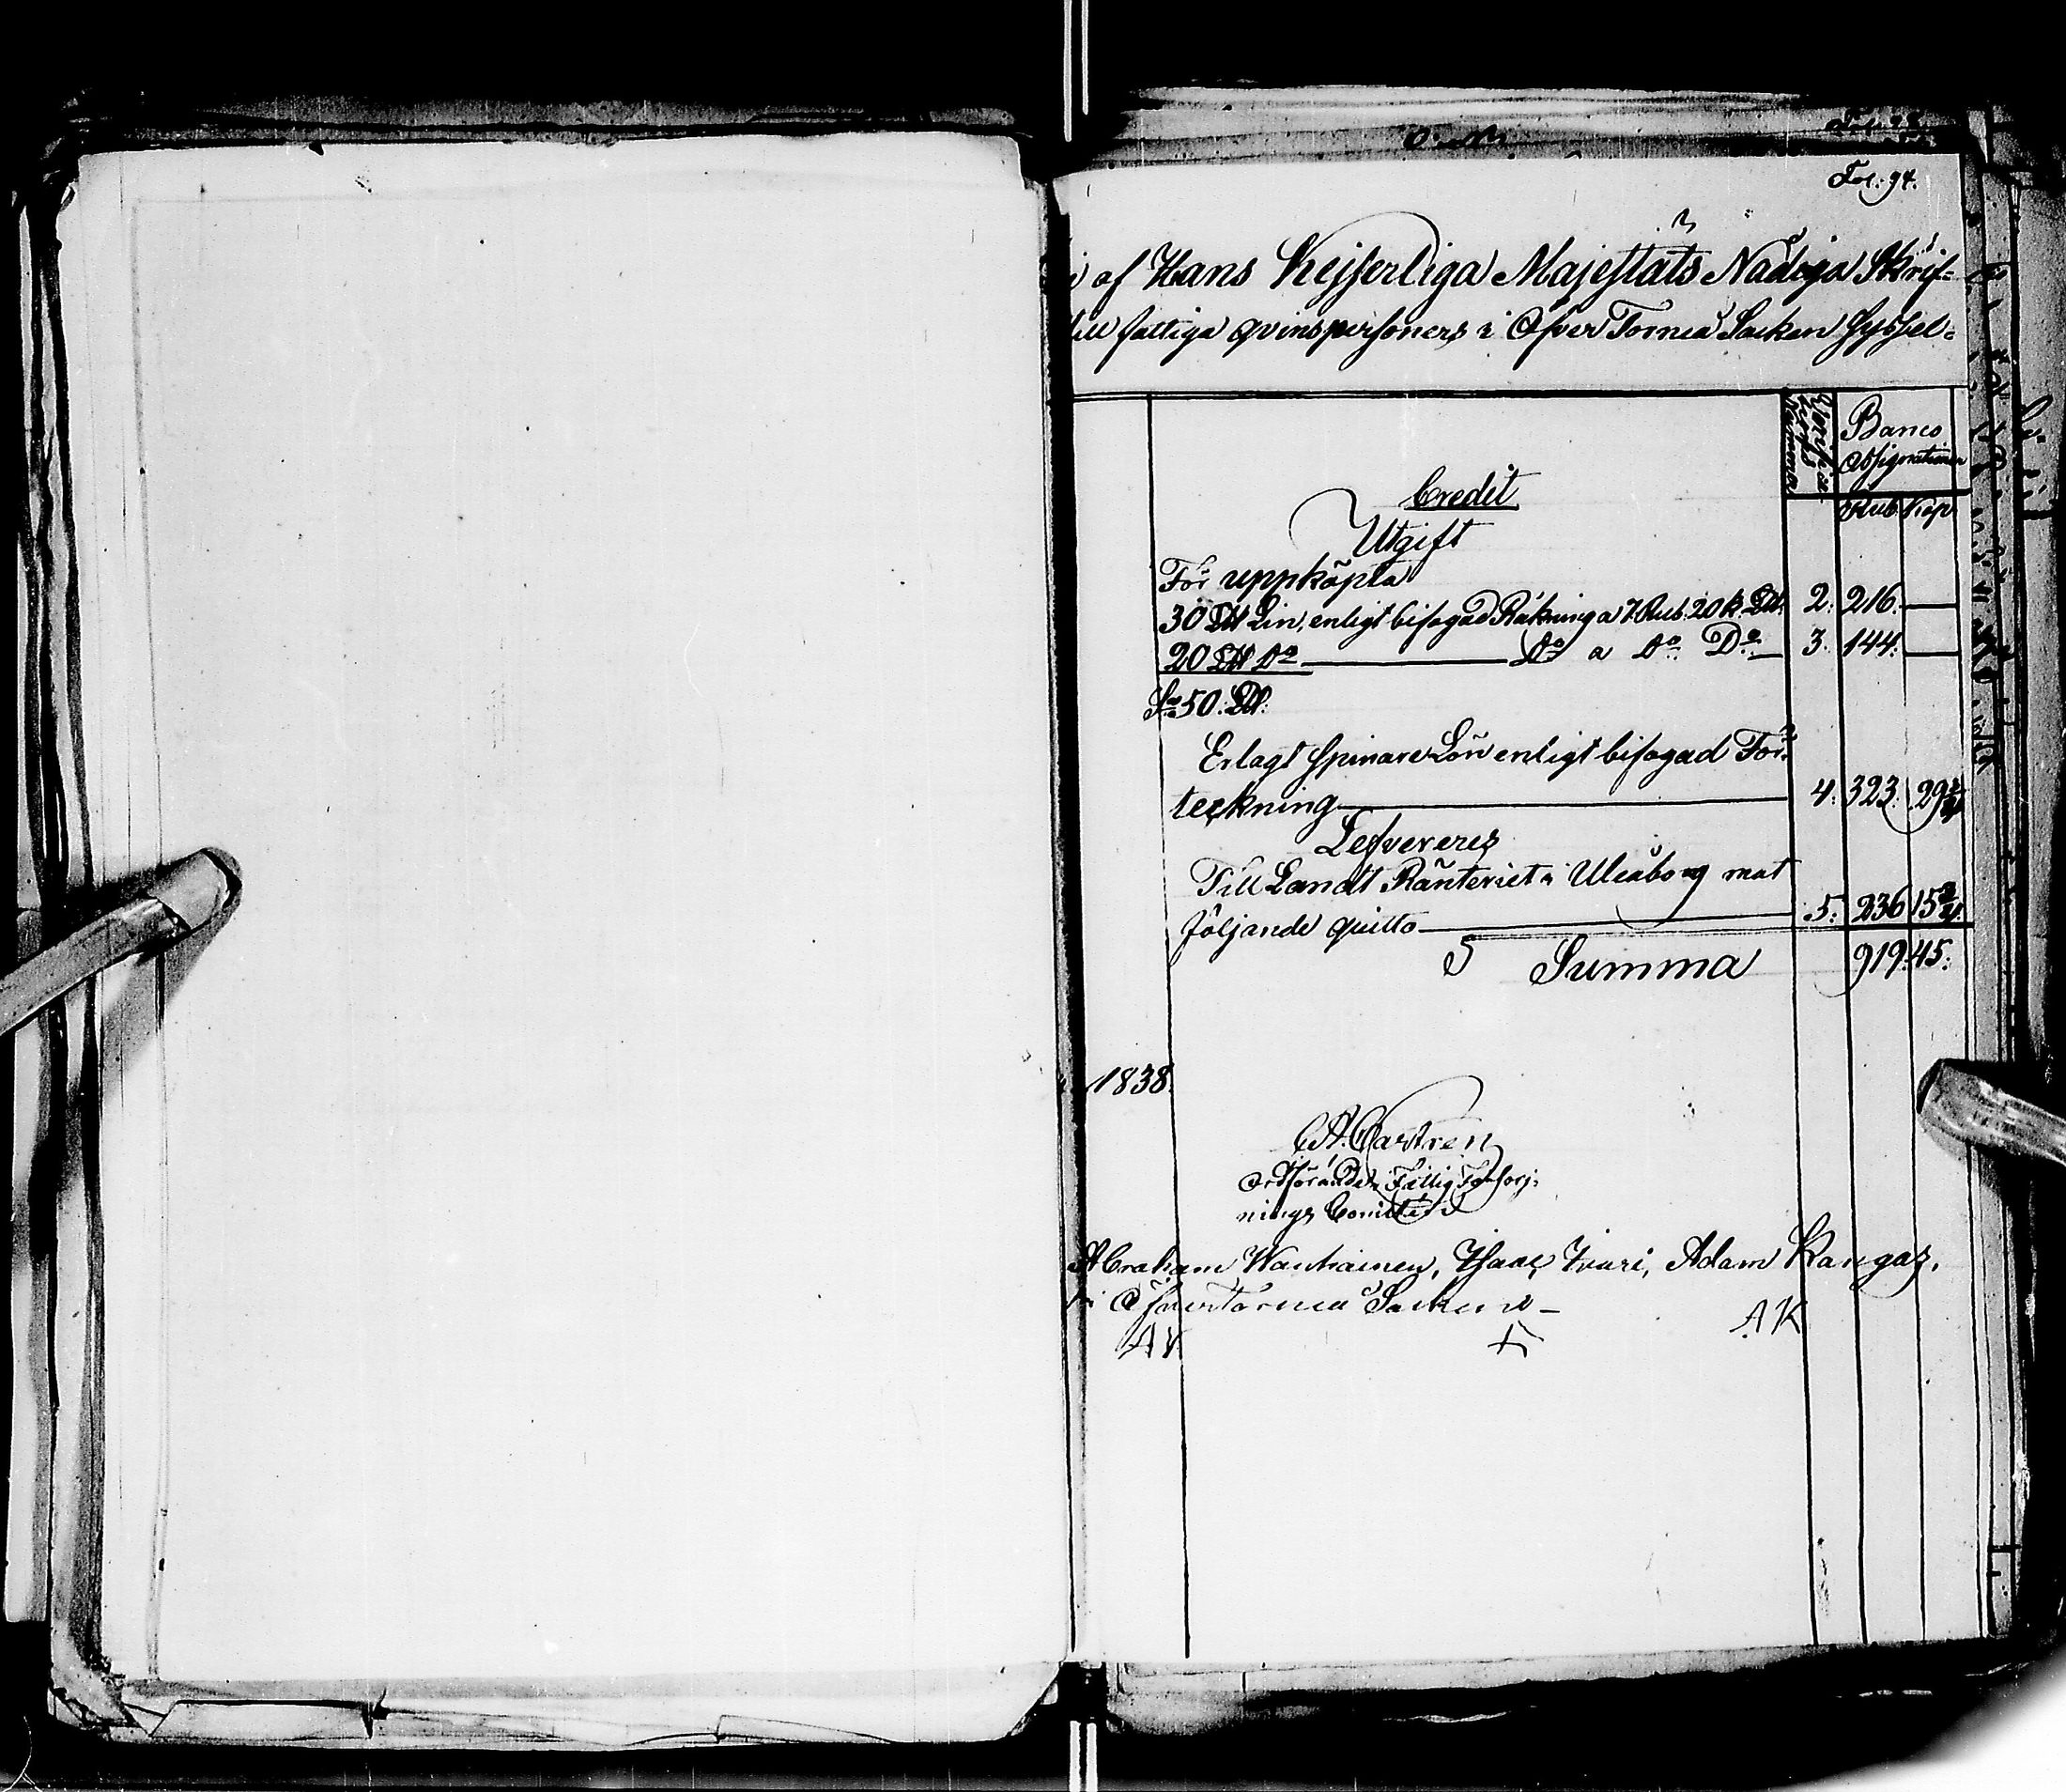 Fol. 94.
af Hans Kejserliga Majestäts Nådiga Skrif-
till fattiga qvinspersoners i Öfver Torneå Socken syssel-
Banco Assignationer
Rub. Kop.
Credit
Utgift
För uppköpta
30 LH Lin, enligt bifogad Räkning a 7 Rub. 20 k. LH. 2. 216. —
20 LH Do — Do a Do Do — 3. 144. —
Sa 50. LH.
Erlagt Spinare Lön enligt bifogad För-
teckning — 4. 323. 29 3/4
Lefvereres
Till Landt Ränteriet i Uleåborg mot
följande quitto — 5. 236 15 3/4.
Summa 919. 45.
1838.
C A Castren
Ordförande i Fattig Försörj-
nings Comitéen
Abraham Wanhainen, Isaac Juuri, Adam Kangas,
i Öfvertorneå Socken
AK